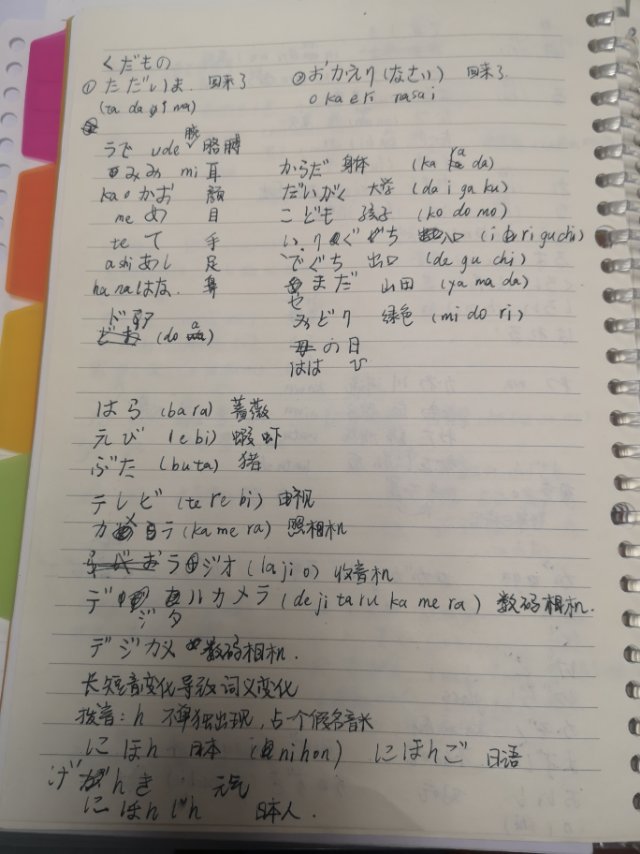 くだもの
① ただいま. 回来了 ② おかえり(なさい) 回来了
(ta da i ma) o ka e ri nasai
うで ude 胳膊
みみ mi 耳 からだ 身体 (ka ra da)
kao かお 顔 だいがく 大学 (da i ga ku)
me め 目 こども 孩子 (ko do mo)
te て 手 いりぐち 入口 (i ri gu chi)
ashi あし 足 でぐち 出口 (de gu chi)
hana はな. 鼻 やまだ 山田 (ya ma da)
ドア (do a) みどり 绿色 (mi do ri)
母の日
はは ひ
ばら (bara) 蔷薇
えび (e bi) 蝦 虾
ぶた (buta) 猪
テレビ (te re bi) 电视
カメラ (ka me ra) 照相机
ラジオ (la ji o) 收音机
デジタルカメラ (de ji ta ru ka me ra) 数码相机.
デジカメ 数码相机.
长短音变化导致词义变化
拨音: n 不单独出现, 占一个假名音长
にほん 日本 (nihon) にほんご 日语
げんき 元气
にほんじん 日本人.